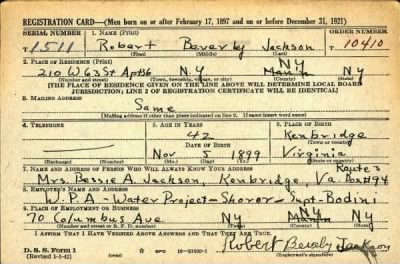 REGISTRATION CARD—(Men born on or after February 17, 1897 and on or before December 31, 1921)
SERIAL NUMBER 1. NAME (Print) ORDER NUMBER
T 1511 Robert Beverly Jackson T 10410
(First) (Middle) (Last)
2. PLACE OF RESIDENCE (Print)
210 W 63 St Apt B6 N.Y. Mann NY NY
(Number and street) (Town, township, village, or city) (County) (State)
[THE PLACE OF RESIDENCE GIVEN ON THE LINE ABOVE WILL DETERMINE LOCAL BOARD
JURISDICTION; LINE 2 OF REGISTRATION CERTIFICATE WILL BE IDENTICAL]
3. MAILING ADDRESS
Same
[Mailing address if other than place indicated on line 2. If same insert word same]
4. TELEPHONE 5. AGE IN YEARS 6. PLACE OF BIRTH
42 Kenbridge
DATE OF BIRTH (Town or county)
Nov 5 1899 Virginia
(Exchange) (Number) (Mo.) (Day) (Yr.) (State or country)
7. NAME AND ADDRESS OF PERSON WHO WILL ALWAYS KNOW YOUR ADDRESS Route 2
Mrs. Bessie A. Jackson, Kenbridge, Va. Box #94
8. EMPLOYER'S NAME AND ADDRESS
W.P.A - Water Project - Shorer - Supt - Bodini
9. PLACE OF EMPLOYMENT OR BUSINESS
70 Columbus Ave NY Mann NY NY
(Number and street or R. F. D. number) (Town) (County) (State)
I AFFIRM THAT I HAVE VERIFIED ABOVE ANSWERS AND THAT THEY ARE TRUE.
D. S. S. Form 1
(Revised 1-1-42) (over) GPO Robert Bevely Jackson
(Registrant's signature)